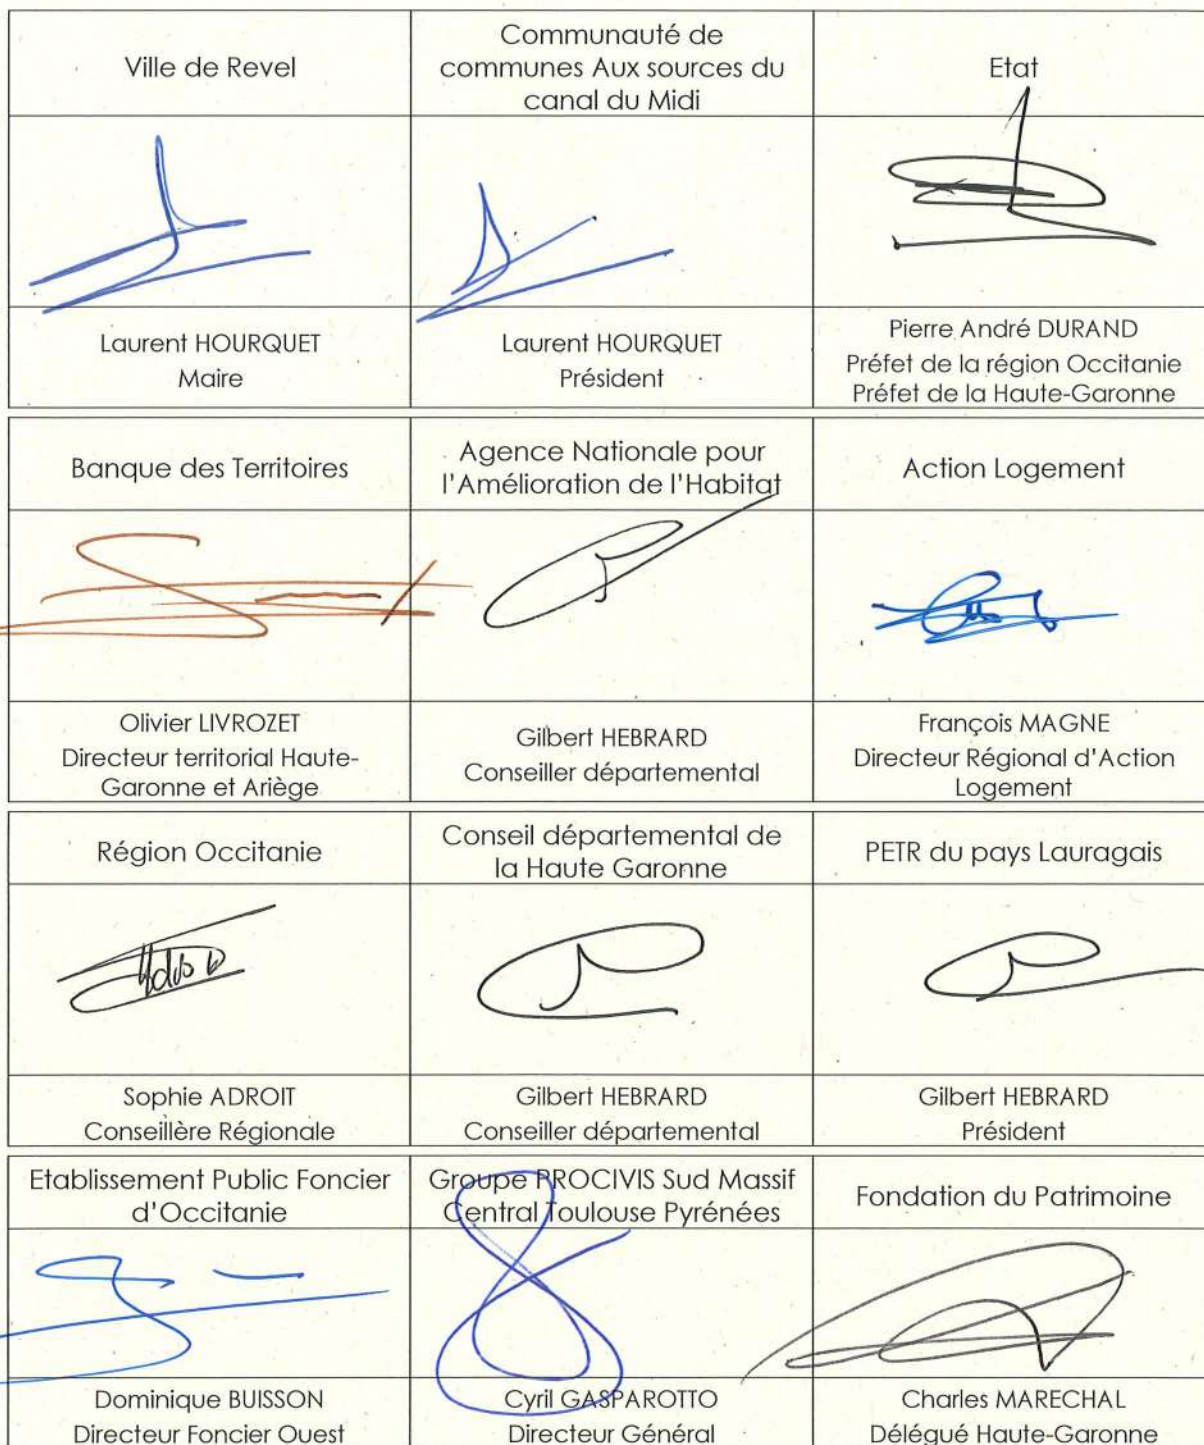 Ville de Revel
Communauté de
communes Aux sources du
canal du Midi
Etat
Laurent HOURQUET
Maire
Laurent HOURQUET
Président
Pierre André DURAND
Préfet de la région Occitanie
Préfet de la Haute-Garonne
Banque des Territoires
Agence Nationale pour
l'Amélioration de l'Habitat
Action Logement
Olivier LIVROZET
Directeur territorial Haute-
Garonne et Ariège
Gilbert HEBRARD
Conseiller départemental
François MAGNE
Directeur Régional d'Action
Logement
Région Occitanie
Conseil départemental de
la Haute Garonne
PETR du pays Lauragais
Sophie ADROIT
Conseillère Régionale
Gilbert HEBRARD
Conseiller départemental
Gilbert HEBRARD
Président
Etablissement Public Foncier
d'Occitanie
Groupe PROCIVIS Sud Massif
Central Toulouse Pyrénées
Fondation du Patrimoine
Dominique BUISSON
Directeur Foncier Ouest
Cyril GASPAROTTO
Directeur Général
Charles MARECHAL
Délégué Haute-Garonne